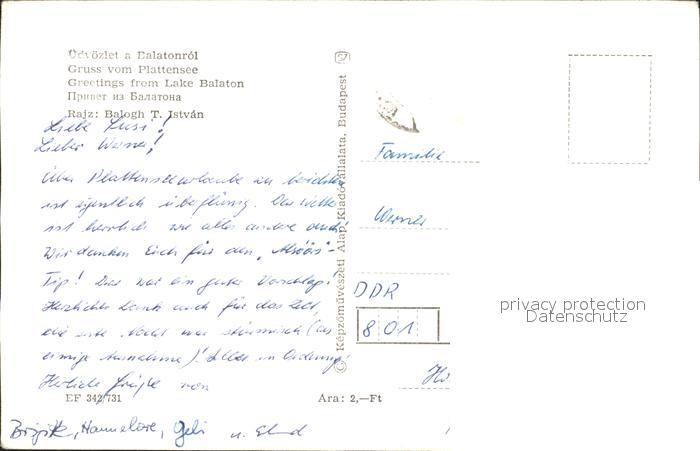 Üdvözlet a Balatonról
Gruss vom Plattensee
Greetings from Lake Balaton
Привет из Балатона
Rajz: Balogh T. István
Liebe Susi!
Lieber Werner!
Über Plattenseeurlaube zu berichten
ist eigentlich überflüssig. Das Wetter
ist herrlich wie alles andere auch!
Wir danken Euch für den „Alsóörs"-
Tip! Das war ein guter Vorschlag!
Herzlichen Dank auch für das Zelt,
die erste Nacht war stürmisch (als
einzige Ausnahme)! Alles in Ordnung!
Herzliche Grüße von
EF 342/731
Ára: 2,—Ft
Brigitte, Hannelore, Gabi u.
© Képzőművészeti Alap Kiadóvállalata, Budapest
Familie
Werner
DDR
801
privacy protection
Datenschutz